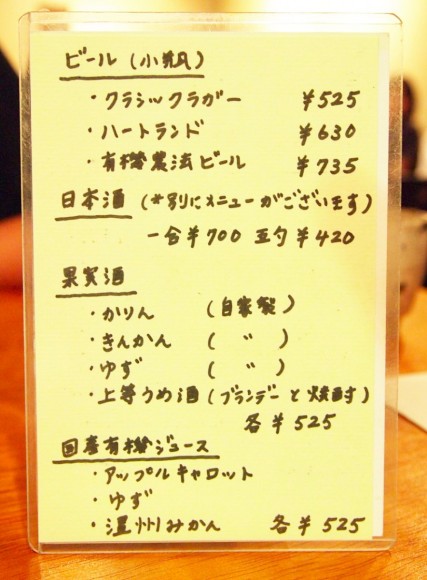 ビール(小瓶)
・クラシックラガー ¥525
・ハートランド ¥630
・有機農法ビール ¥735
日本酒(#別にメニューがございます)
一合¥700 五勺¥420
果実酒
・かりん (自家製)
・きんかん ( 〃 )
・ゆず ( 〃 )
・上等うめ酒(ブランデーと焼酎す)
各¥525
国産有機ジュース
・アップルキャロット
・ゆず
・温州みかん 各¥525